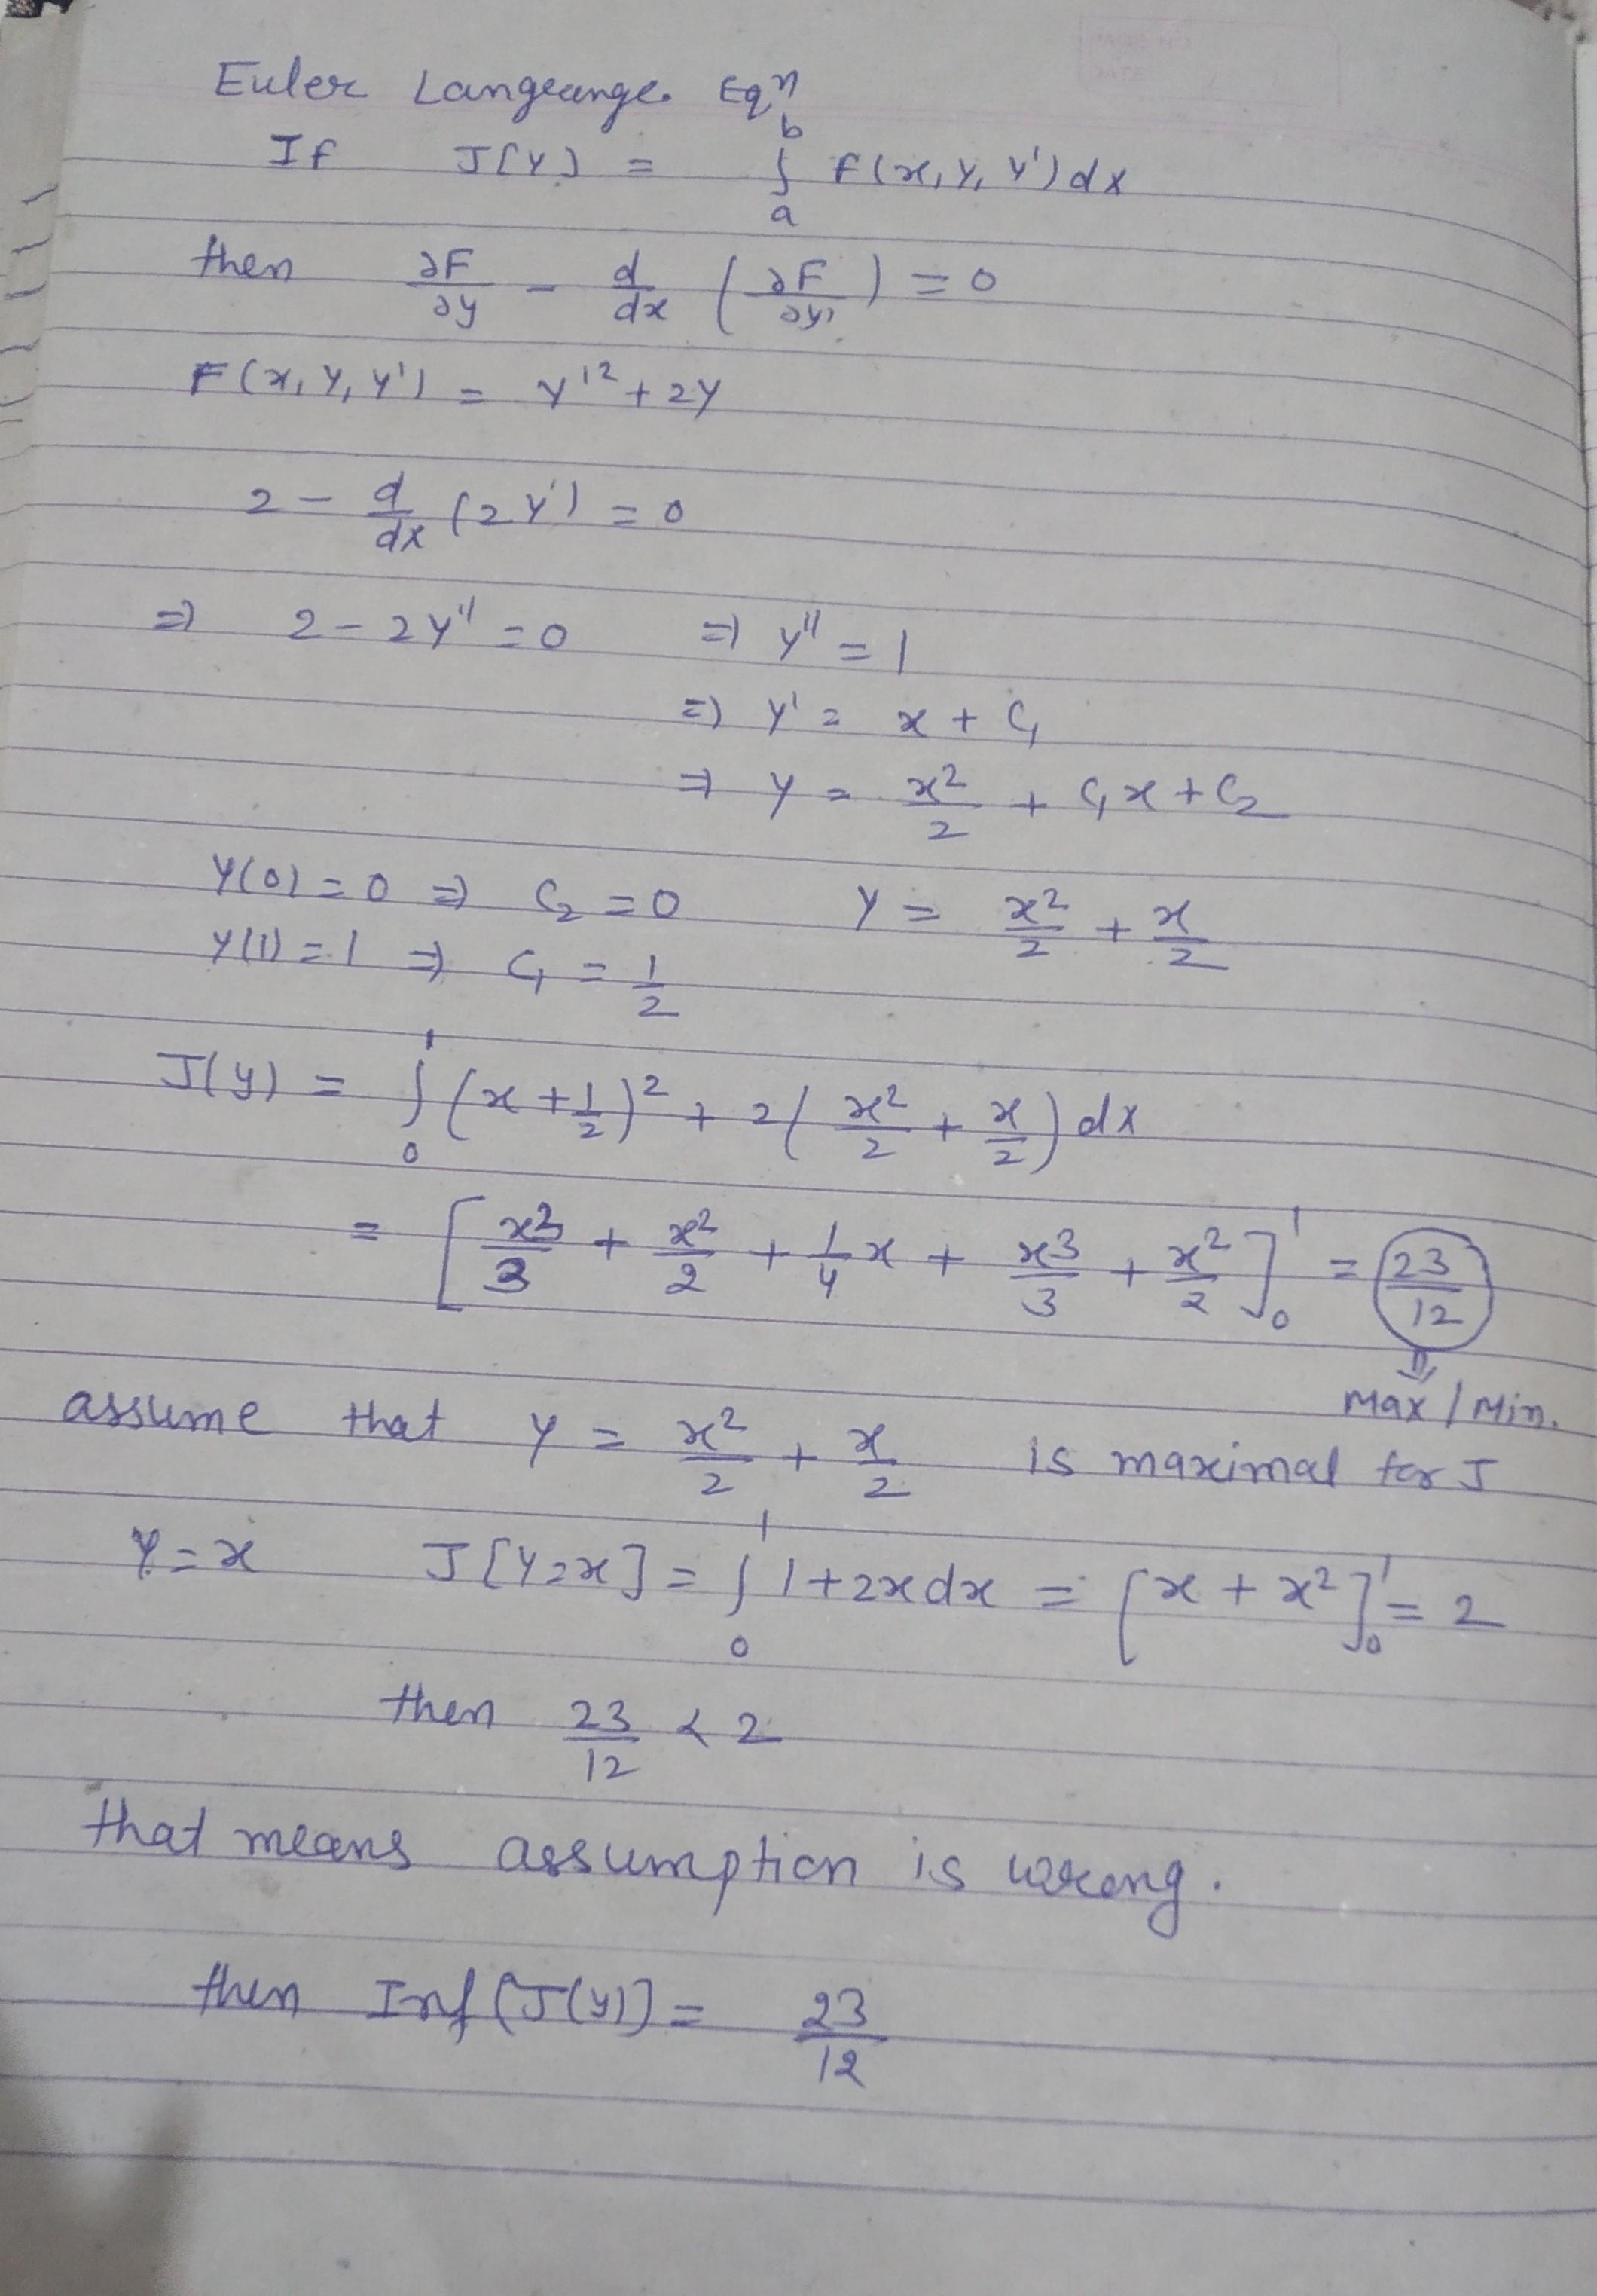 Euler Langrange Eqⁿ
If J[y] = ∫_a^b F(x, y, y') dx
then ∂F/∂y - d/dx (∂F/∂y') = 0
F(x, y, y') = y'² + 2y
2 - d/dx (2y') = 0
⇒ 2 - 2y'' = 0 ⇒ y'' = 1
⇒ y' = x + C₁
⇒ y = x²/2 + C₁x + C₂
y(0) = 0 ⇒ C₂ = 0 y = x²/2 + x/2
y(1) = 1 ⇒ C₁ = 1/2
J(y) = ∫_0^1 (x + 1/2)² + 2(x²/2 + x/2) dx
= [x³/3 + x²/2 + 1/4 x + x³/3 + x²/2]_0^1 = 23/12
⇓
Max / Min.
assume that y = x²/2 + x/2 is maximal for J
y = x J[y=x] = ∫_0^1 1 + 2x dx = [x + x²]_0^1 = 2
then 23/12 < 2
that means assumption is wrong.
then Inf [J(y)] = 23/12